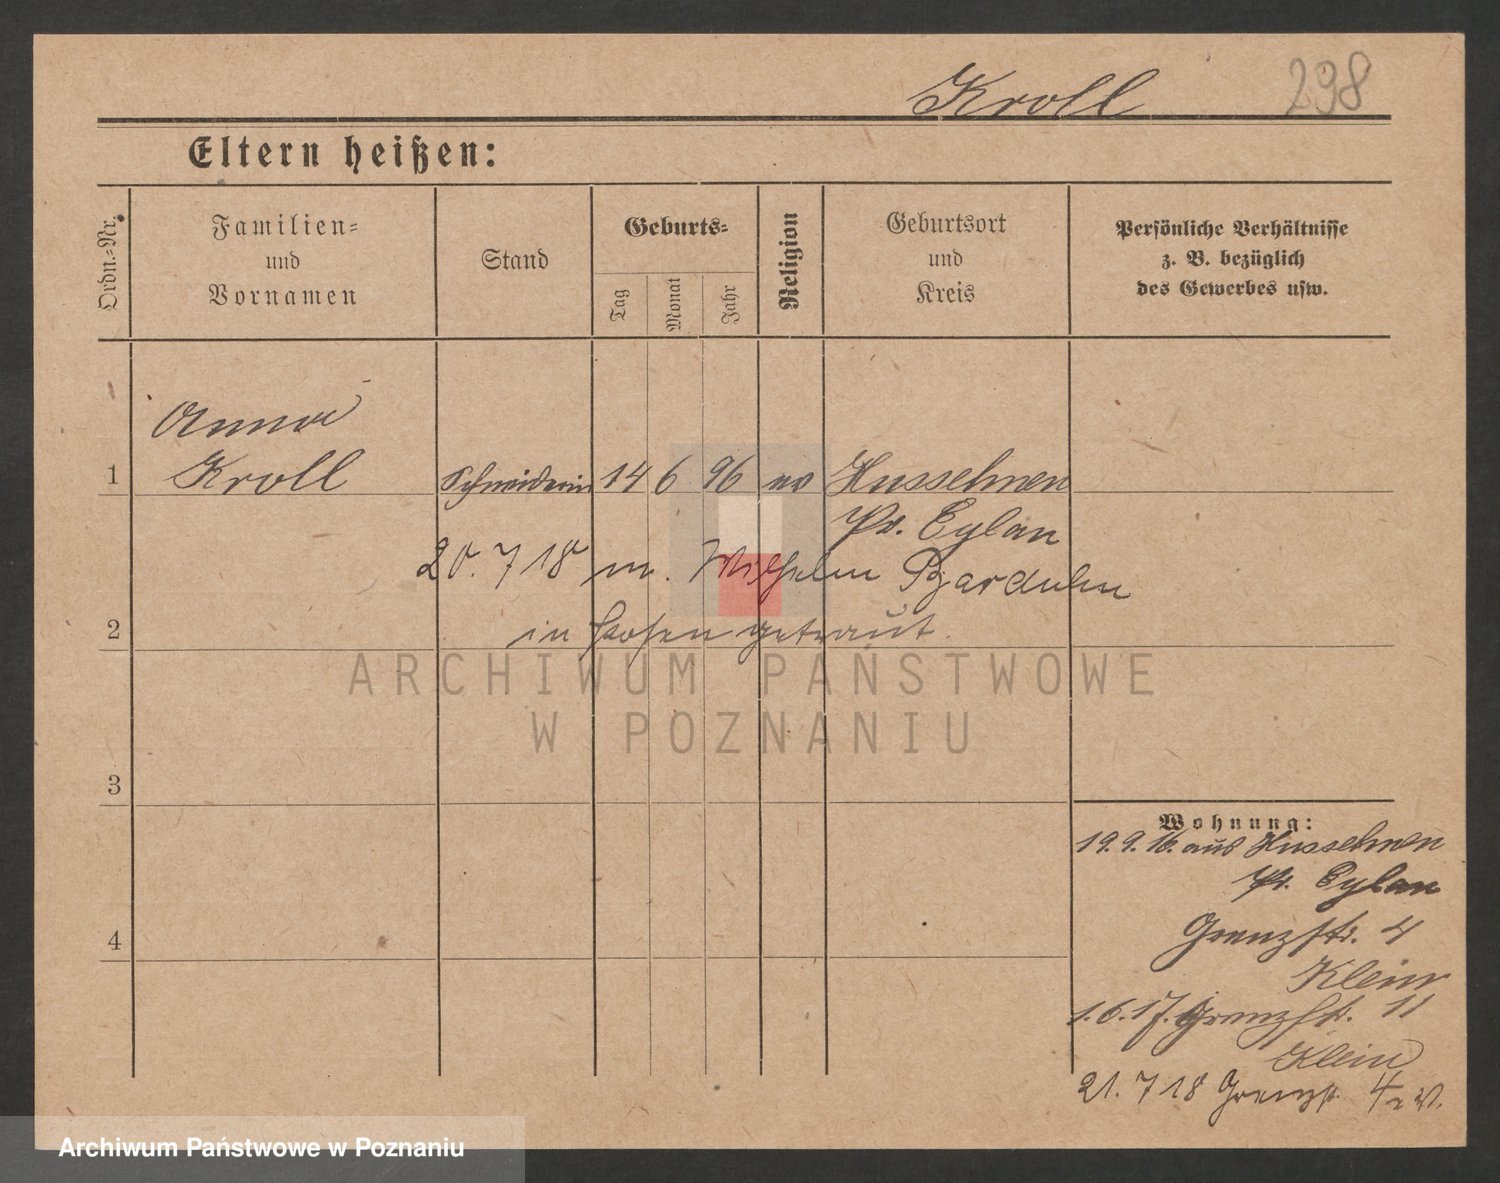 Kroll 298
Eltern heißen:
Ordn.-Nr.
Familien-
und
Vornamen
Stand
Geburts-
Tag
Monat
Jahr
Religion
Geburtsort
und
Kreis
Persönliche Verhältnisse
z. B. bezüglich
des Gewerbes usw.
Anna
1 Kroll Schneiderin 14 6 96 ev Hussehnen
Pr. Eylau
20. 7 18 m. Wilhelm Barduhn
2 in Posen getraut.
ARCHIWUM PAŃSTWOWE
W POZNANIU
3
Wohnung:
19. 9. 16. aus Hussehnen
Pr. Eylau
4 Grenzstr. 4
Klein
1. 6. 17. Grenzstr. 11
Klein
21. 7 18 Grenzstr. 4
Archiwum Państwowe w Poznaniu